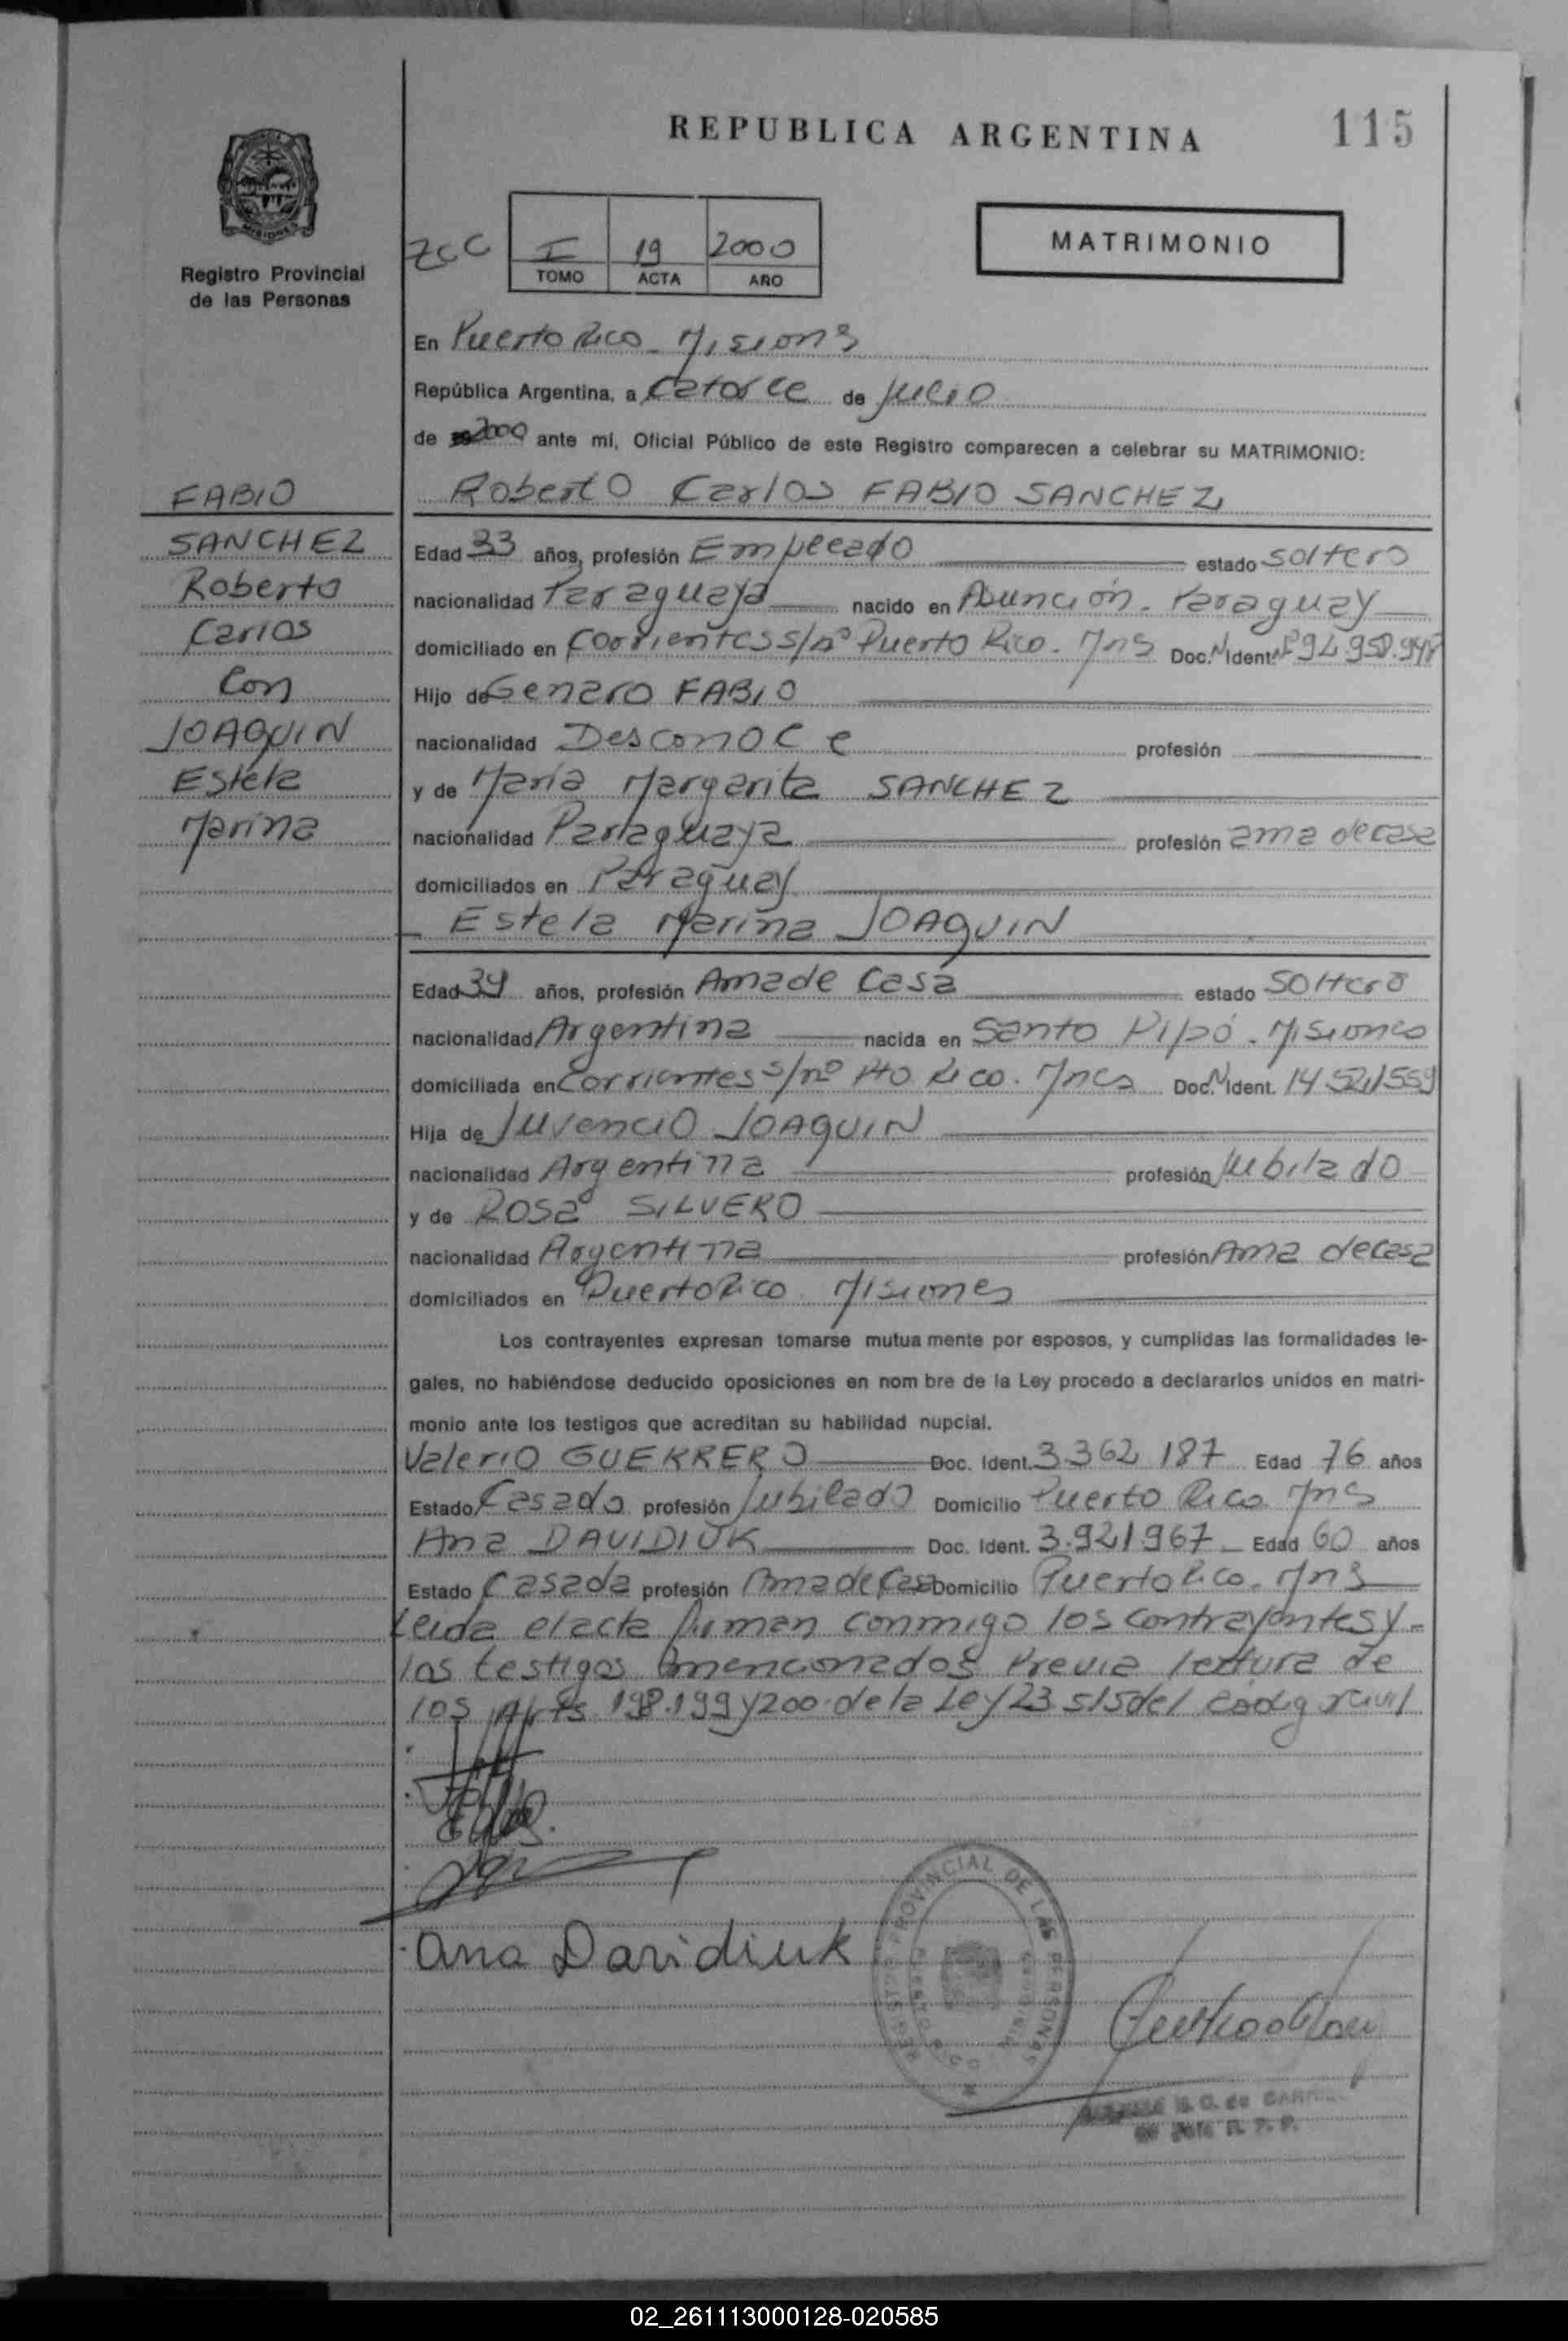 REPUBLICA ARGENTINA
115
MISIONES
Registro Provincial
de las Personas
I 19 2000
TOMO ACTA AÑO
MATRIMONIO
En Puerto Rico - Misions
República Argentina, a Catorce de Julio
de 2000 ante mí, Oficial Público de este Registro comparecen a celebrar su MATRIMONIO:
Roberto Carlos FABIO SANCHEZ
FABIO
SANCHEZ
Roberto
Carlos
Con
JOAQUIN
Estela
Marina
Edad 33 años, profesión Empleado estado soltero
nacionalidad Paraguaya nacido en Asunción - Paraguay
domiciliado en Corrientes s/nº Puerto Rico - Mns Doc. N Ident.
Hijo de Genaro FABIO
nacionalidad Desconoce profesión
y de María Margarita SANCHEZ
nacionalidad Paraguaya profesión ama de casa
domiciliados en Paraguay
Estela Marina JOAQUIN
Edad 39 años, profesión Ama de Casa estado Soltera
nacionalidad Argentina nacida en Santo Pipó - Misiones
domiciliada en Corrientes s/nº Pto Rico - Doc. N Ident. 14 521 559
Hija de Juvencio JOAQUIN
nacionalidad Argentina profesión Jubilado
y de Rosa SILVERO
nacionalidad Argentina profesión Ama de Casa
domiciliados en Puerto Rico Misiones
Los contrayentes expresan tomarse mutua mente por esposos, y cumplidas las formalidades le-
gales, no habiéndose deducido oposiciones en nom bre de la Ley procedo a declararlos unidos en matri-
monio ante los testigos que acreditan su habilidad nupcial.
Valerio GUERRERO Doc. Ident. 3.362 187 Edad 76 años
Estado Casado profesión Jubilado Domicilio Puerto Rico Mns
Ana DAVIDIUK Doc. Ident. 3.921.967 Edad 60 años
Estado Casada profesión Ama de Casa Domicilio Puerto Rico - Mns
Leida el acta firman conmigo los contrayentes y
los testigos mencionados Previa lectura de
los Arts 198.199 y 200 de la Ley 23 515 del Código Civil
Ana Davidiuk
PROVINCIAL DE LAS PERSONAS
02_261113000128-020585